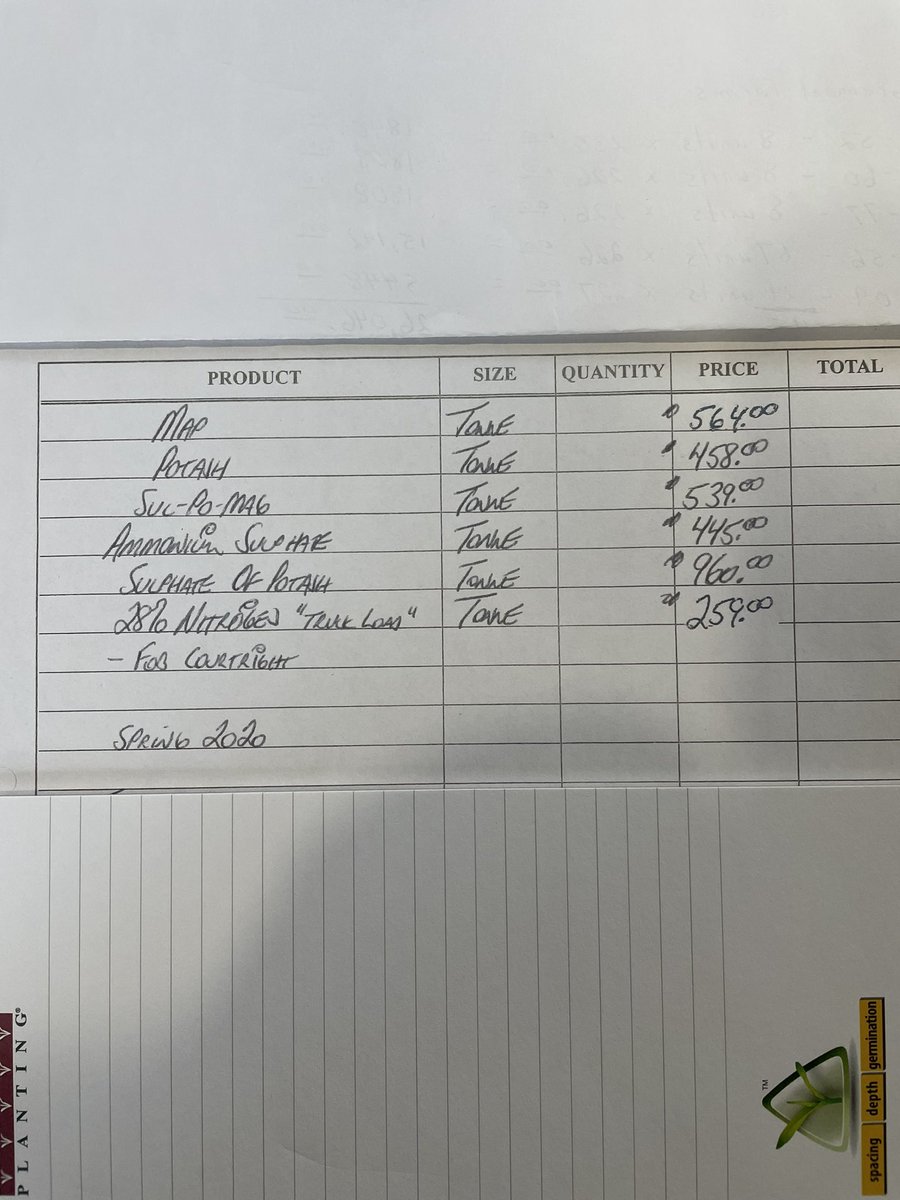 PRODUCT SIZE QUANTITY PRICE TOTAL
MAP TONNE $564.00
POTASH TONNE $458.00
SUL-PO-MAG TONNE $539.00
AMMONIUM SULPHATE TONNE $445.00
SULPHATE OF POTASH TONNE $960.00
28% NITROGEN "TRUCK LOAD" TONNE $259.00
- FOB COURTRIGHT
SPRING 2020
PLANTING®
spacing depth germination
TM